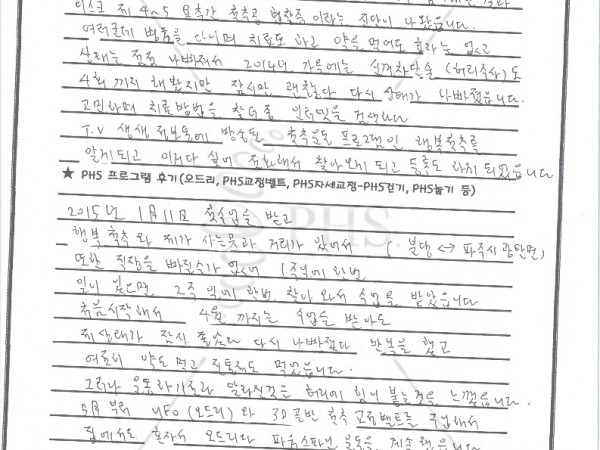 디스크 제 4~5 요추간 척추공 협착증 이라는 진단이 나왔습니다.
여러군데 병원을 다니며 치료도 하고 약을 먹어도 효과는 없고
상태는 점점 나빠져서 2014년 가을에는 신경차단술 (허리주사)도
4회 까지 해봤지만 잠시만 괜찮다 다시 상태가 나빠졌습니다.
고민하며 치료방법을 찾던중 인터넷을 검색하다
T.V 생생정보통에 방송된 척추운동 프로그램인 행복척추를
알게되고 이거다 싶어 전화해서 찾아오게 되고 등록도 하게 되었습니다
★ PHS 프로그램 후기(오드리, PHS교정벨트, PHS자세교정-PHS걷기, PHS눕기 등)
2015년 1月11日 첫수업을 받고
행복 척추와 제가 사는곳과 거리가 있어서 ( 분당 ↔ 파주시 광탄면)
또한 직장을 빠질수가 없어서 1주일에 한번
일이 있으면 2주일에 한번 찾아 와서 수업을 받았습니다
처음시작해서 4월 까지는 수업을 받아도
제상태가 잠시 좋았다 다시 나빠졌다 반복을 했고
여전히 약도 먹고 진통제도 먹었습니다.
그러나 운동하기전과 달라진것은 허리에 힘이 붙는것을 느꼈습니다.
5月 부터 UFO (오드리) 와 3D 골반 척추 교정벨트를 구입해서
집에서도 혼자서 오드리와 파워스파인 운동을 계속 했습니다
PHS